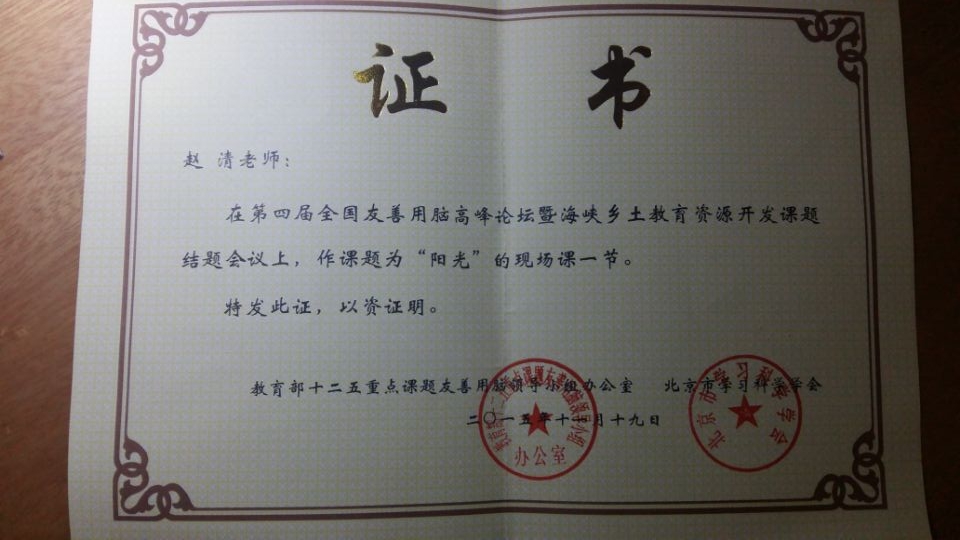 证 书
赵 清老师：
在第四届全国友善用脑高峰论坛暨海峡乡土教育资源开发课题
结题会议上，作课题为“阳光”的现场课一节。
特发此证，以资证明。
教育部十二五重点课题友善用脑领导小组办公室 北京市学习科学学会
二〇一五年十 月十九日
办公室
北京市学习科学学会